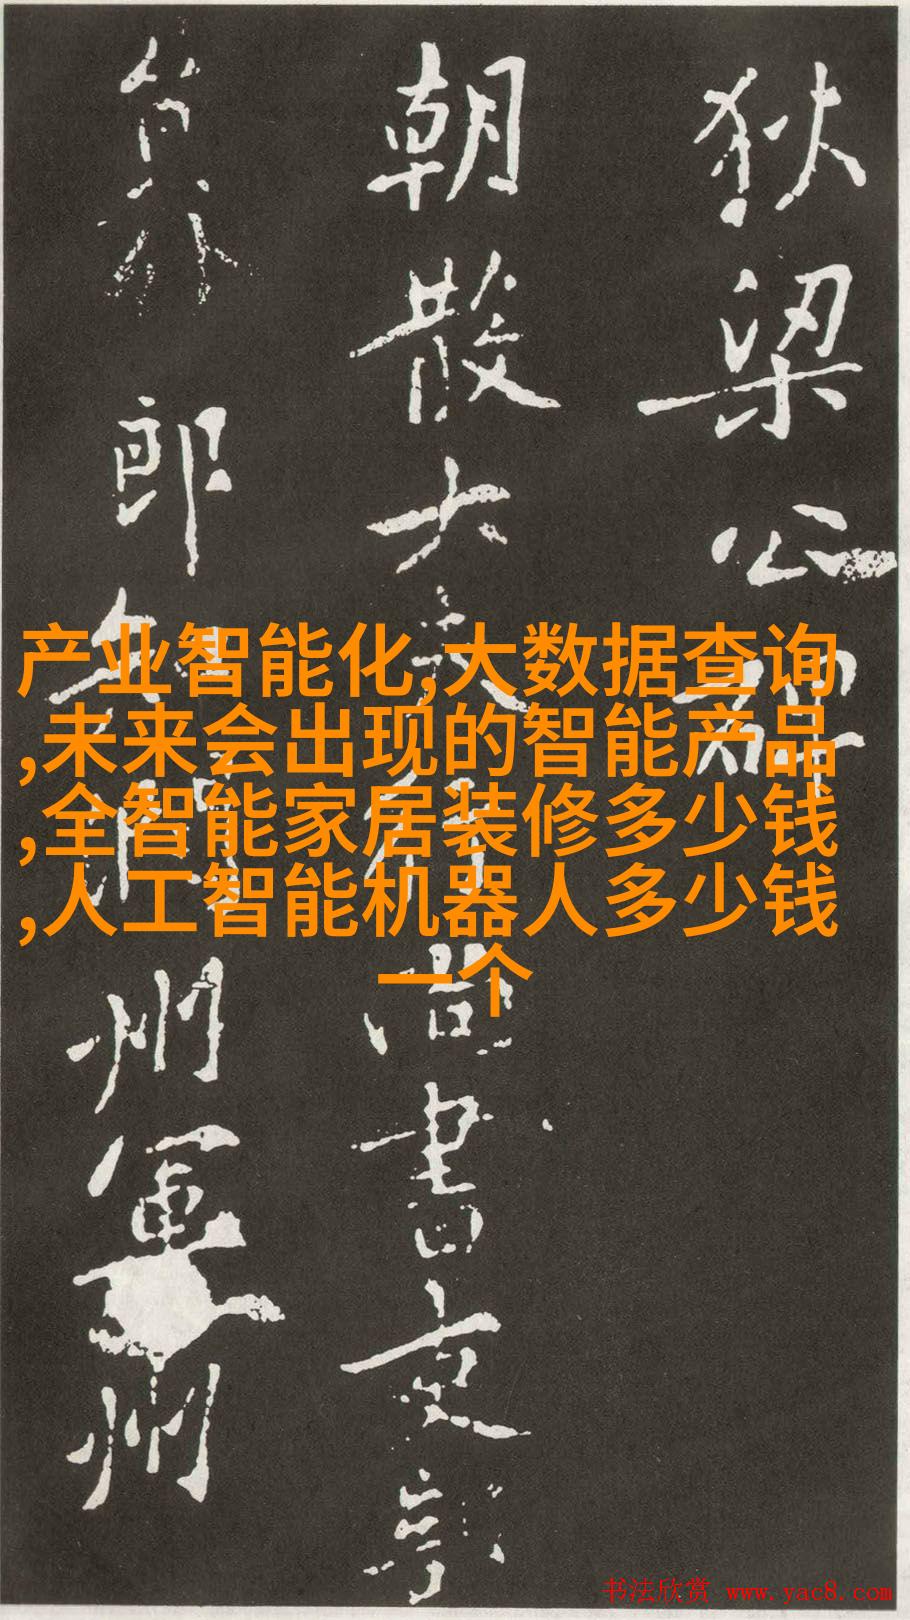 狄梁公碑
朝散大夫行尚書吏
郎
州軍州
产业智能化,大数据查询
,未来会出现的智能产品
,全智能家居装修多少钱
,人工智能机器人多少钱
一个
书法欣赏 www.yac8.com